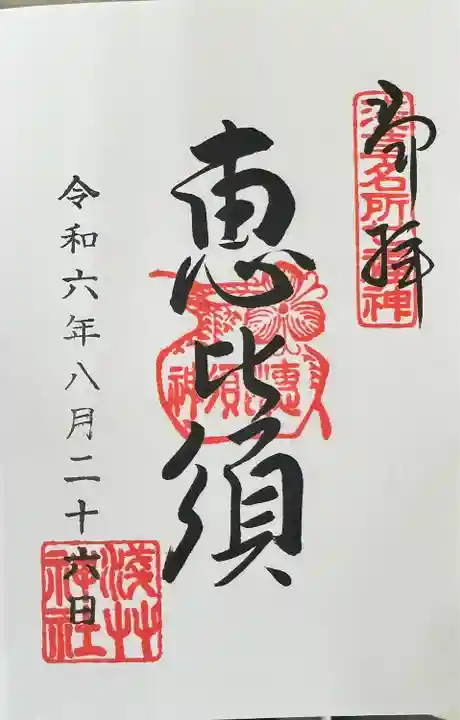 御拝
浅草名所七福神
恵比須
令和六年八月二十六日
淺草
神社